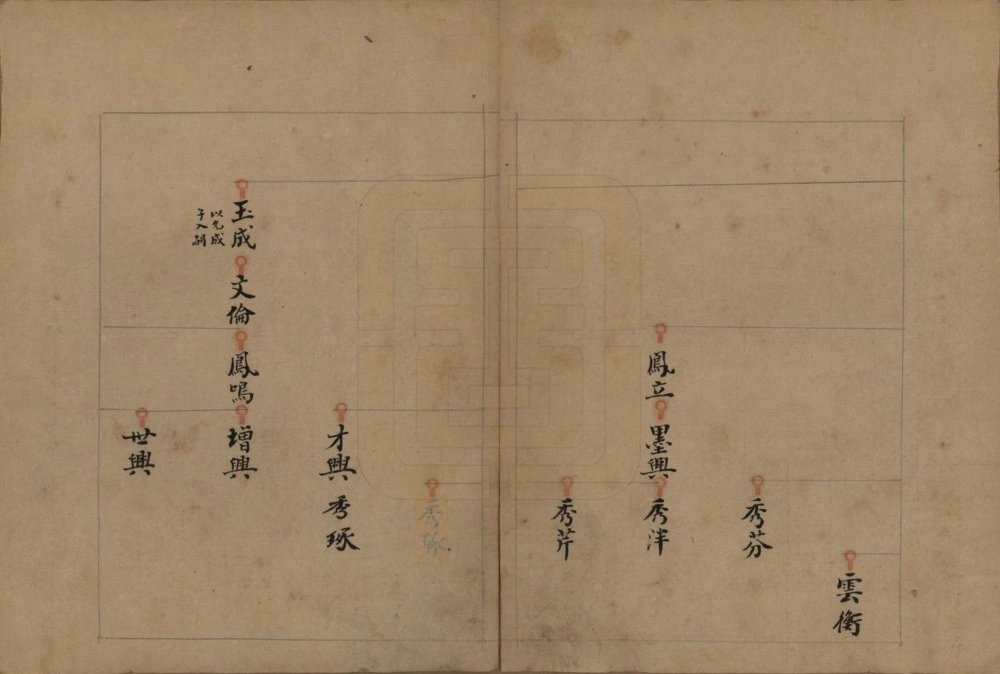 雲衡
秀芬
鳳立
墨興
秀泮
秀芹
秀琢
才興
秀琢
玉成
以允成
子入嗣
文倫
鳳鳴
增興
世興